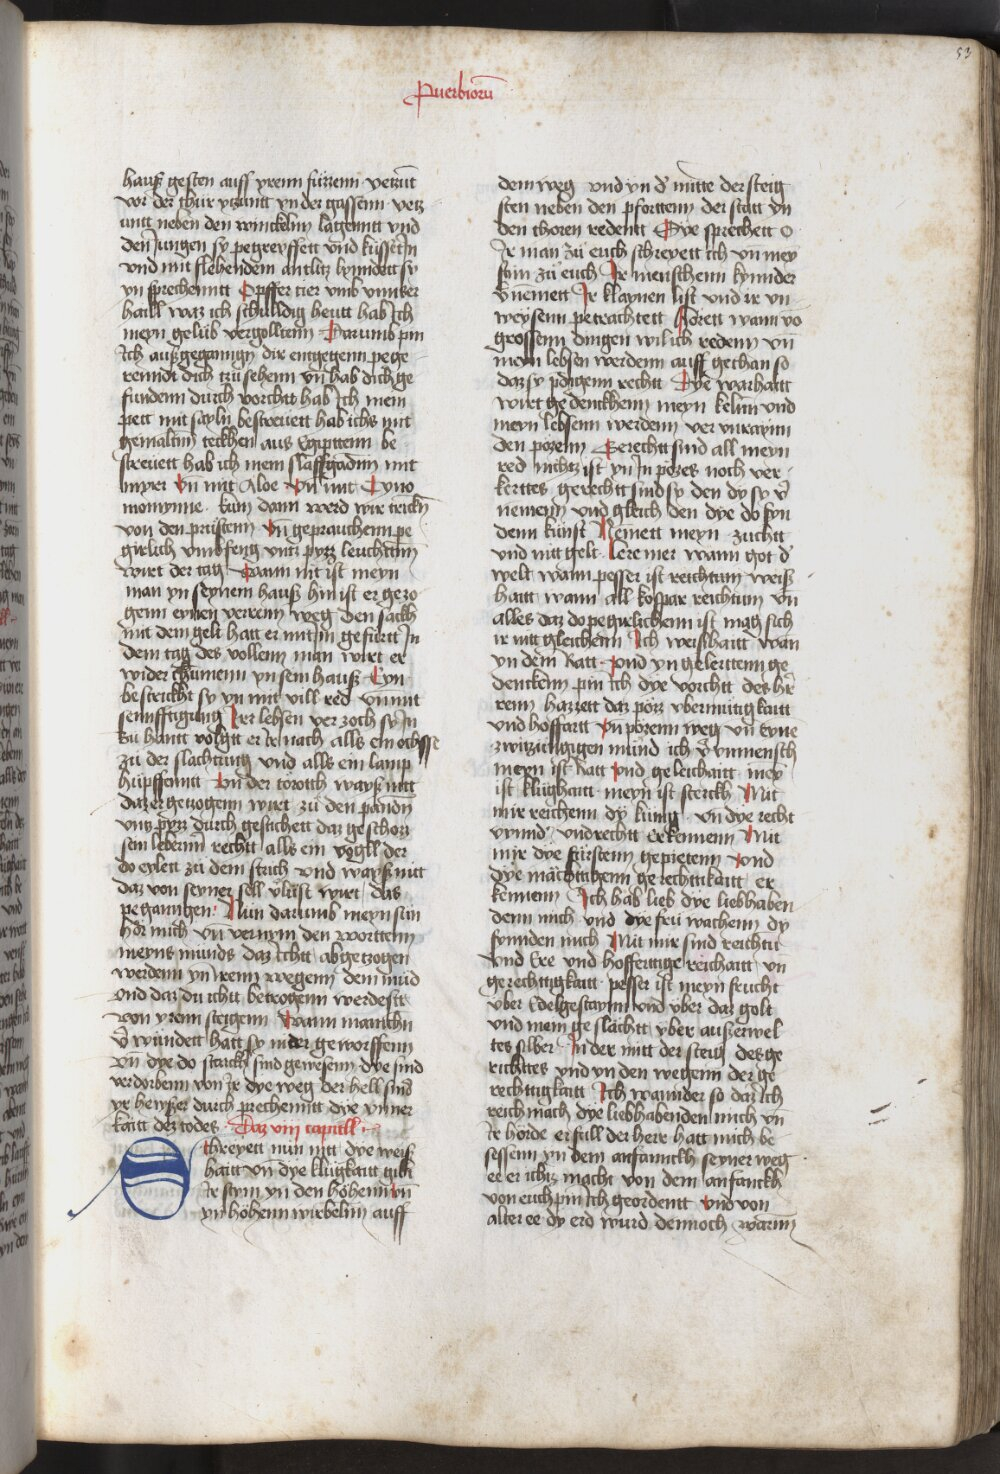 53
Puerbiorū
hauß gesten auff yrenn füzzenn yetzūt
vor der thür ytzūtt yn der gassenn yetz
untt neben den winckelnn lagenntt vnd
den Jungen sy pegreyffett vnd küssett In
vnd mit flehendem antlitz kynndett sy
yn sprechenntt Opffer tier vmb vnnser
haill waz ich schuldig heutt hab Ich
meyn gelüb vergolltenn Darumb pin
Ich außgegangn dir entgegenn pege
renndt dich tzū sehenn vn̄ hab dich ge
fundenn durch vorcht hab Ich mein
pett mit sayln bestreuett hab ichs mit
gemaltnn teckhen aus Egipttenn be
streuett hab ich mein slaffgadnn mit
mirrt Vn̄ mit Aloe Vn̄ mit Cyno
momynne kūm dann werd wir trūckn̄
von den prüstenn Vn̄ geprauchenn pe
girlich vmbfeng vntz pytz leuchttnn
wirt der tag Wann nit ist meyn
man yn seynem hauß hin ist er gezo
genn eynen verrenn weg den sackh
mit dem gelt hatt er mit Im gefürtt In
dem tag des vollenn man wirt er
wider chūmenn yn sein hauß Eyn
bestrickht sy yn mit vill red vn̄ mit
sennfftigung Irer lebsen ver zoch sy In
Zu hantt volgtt er Ir nach alls ein ochsse
zū der slachtung vnd alls ein lamp
hüpffenntt Vn̄ der torotth wayß nitt
daz er getzogenn wirt zū den panden
vntz pytz durch gestichett daz geschoz
sein leberin̄ rechtt alls ein vogll der
do eylett zū dem strich vnd wayß nitt
daz von seyner sell v̄lust wirt das
pegangen Nun darumb meyn sūn
hör mich vn̄ vernym den worttenn
meyns munds daz Ichtt abgetzogen
werdenn yn Irenn wegenn dein mūd
vnd daz du ichtt betrogenn werdestt
von yrenn steigenn Wann manichn
v̄wündett hatt sy nider geworffenn
vn̄ dye do starckh sind gewesenn dye sind
verdorbenn von Ir dye weg der hell sind
yr hewßer durch prechenntt dye ynner
kaitt dez todes Daz viii capitell
Schreyett nūn nitt dye weiß
haitt vn̄ dye klügkaitt gibt
Ir stym yn den höhenn vn̄
yn höhenn wirbelnn auff
dem weg vnd yn d' mitte der steig
sten neben den pforttenn der statt yn
den thoren redentt Dye sprechett O
Ir man zū euch schreyett ich vn̄ mey
stim zū euch Ir menschenn kynnder
v̄nemett Ir klaynen list vnd ir vn
weysenn petrachtett Horett wann vō
grossenn dingen wil ich redenn vn̄
mein lebsen werdenn auff gethan so
daz sy pdigenn rechtt Dye warhaitt
wirt gedenckhenn meyn kelnn vnd
meyn lebsenn werdenn ver vnraynn
den pozenn Gerechtt sind all meyn
red nichtz ist yn In pözes noch ver
kerttes gerechtt sind sy den dy sy v̄
nemenn vnd gleich den dye do fyn
denn künst Nemett meyn zuchtt
vnd nit gelt lere mer wann got d'
welt wann pesser ist reichtum weiß
haitt wann all kospar reichtum vn̄
alles daz do pegirlichenn ist mag sich
ir nitt gleichenn Ich weißhaitt wan
yn dem Ratt vnd yn gelerttenn ge
denckenn pin Ich dye vorchtt des hr̄
renn hazzett daz pözz vbermütigkaitt
vnd hoffartt Vn̄ pözenn weg vn̄ eyne
zwitzüngigen mūnd ich v̄vnmensch
meyn ist Ratt vnd geleichaitt mey
ist klüghaitt meyn ist sterckh Mit
mir reichenn dy künig vn̄ dye recht
vrund vndrechtt erkennenn Mit
mir dye fürstenn gepietenn vnd
dye mächttigenn gerechttikaitt er
kennenn Ich hab lieb dye liebhaben
denn mich vnd dye frū wachenn dy
fynnden mich Mit mir sind reichtū
vnd Ere vnd hoffertige reichaitt vn̄
gerechttigkaitt pesser ist meyn frucht
vber Edelgestaynn vnd vber daz golt
vnd mein geslächtt vber außerwel
tes silber In der mitt der steig des ge
richttes vnd yn den wegenn der ge
rechttigkaitt Ich wannder so daz Ich
reich mach dye liebhabenden mich vn̄
Ir hörde erfüll der herr hatt mich be
sessenn yn dem anfanncklh seyner weg
ee er ichtz macht von dem anfanckh
von euch pin Ich geordentt vnd von
alter ee dy erd wurd dennoch warnn